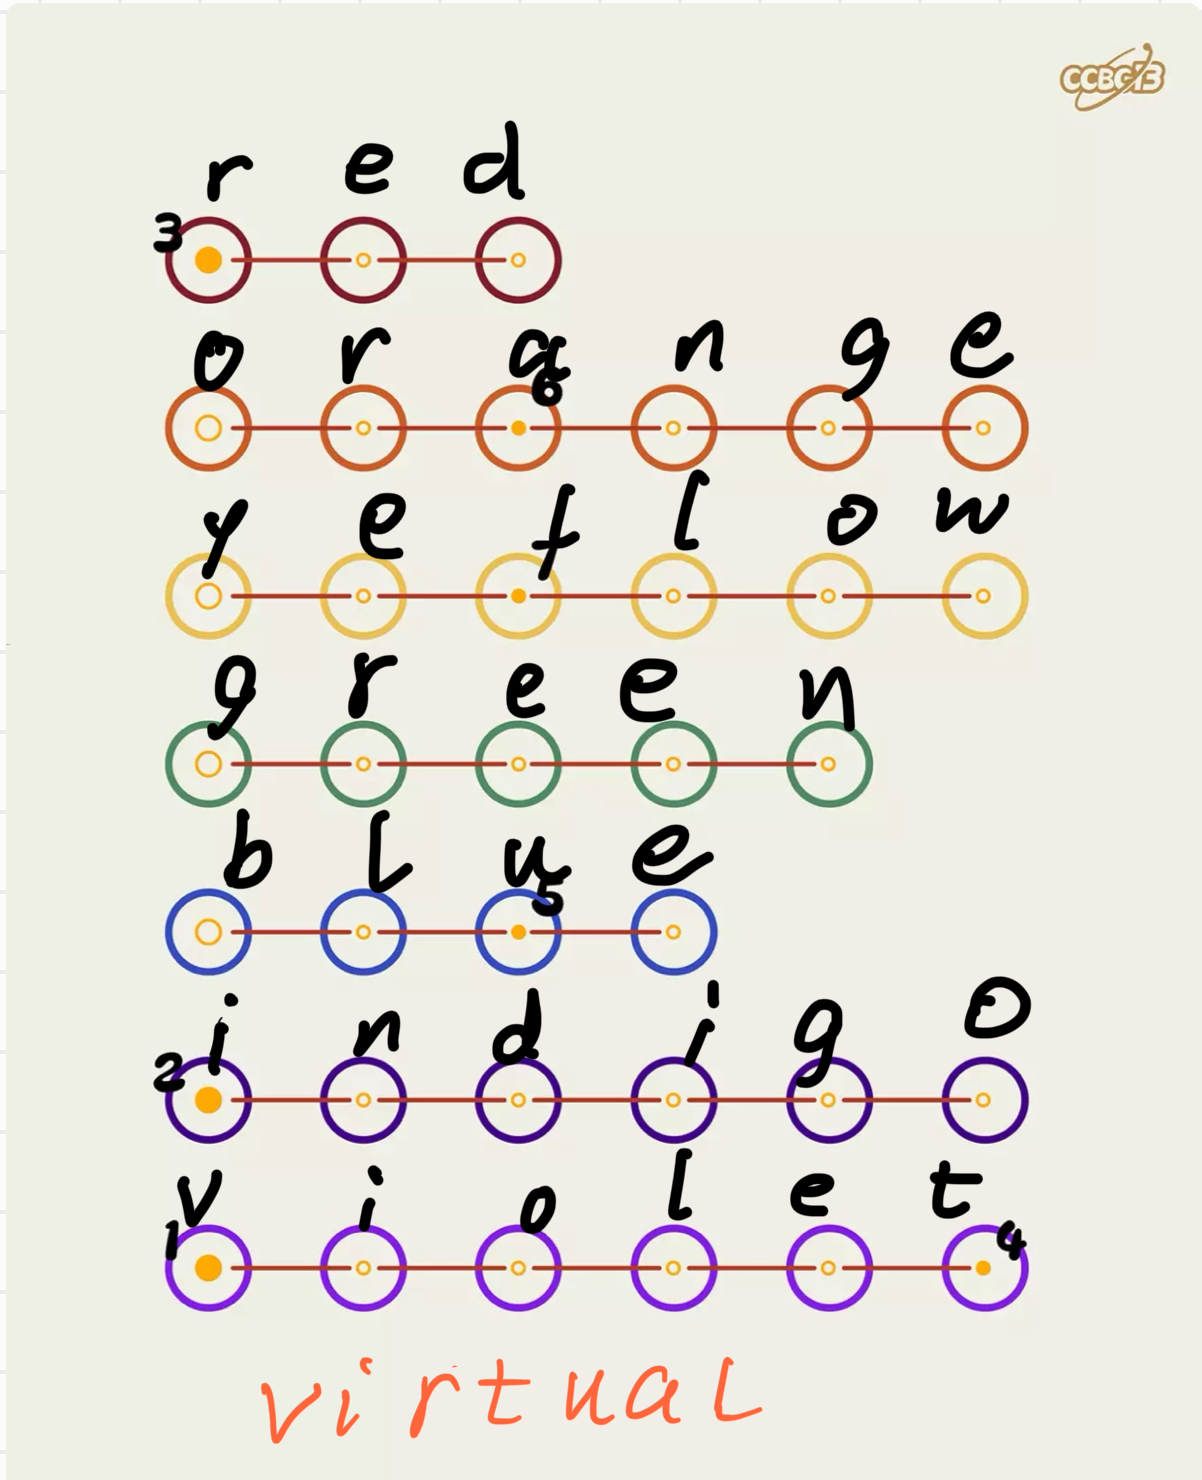 CCBC13
r e d
3
o r a n g e
6
y e f l o w
g r e e n
b l u e
5
i n d i g o
2
v i o l e t
1 4
virtual